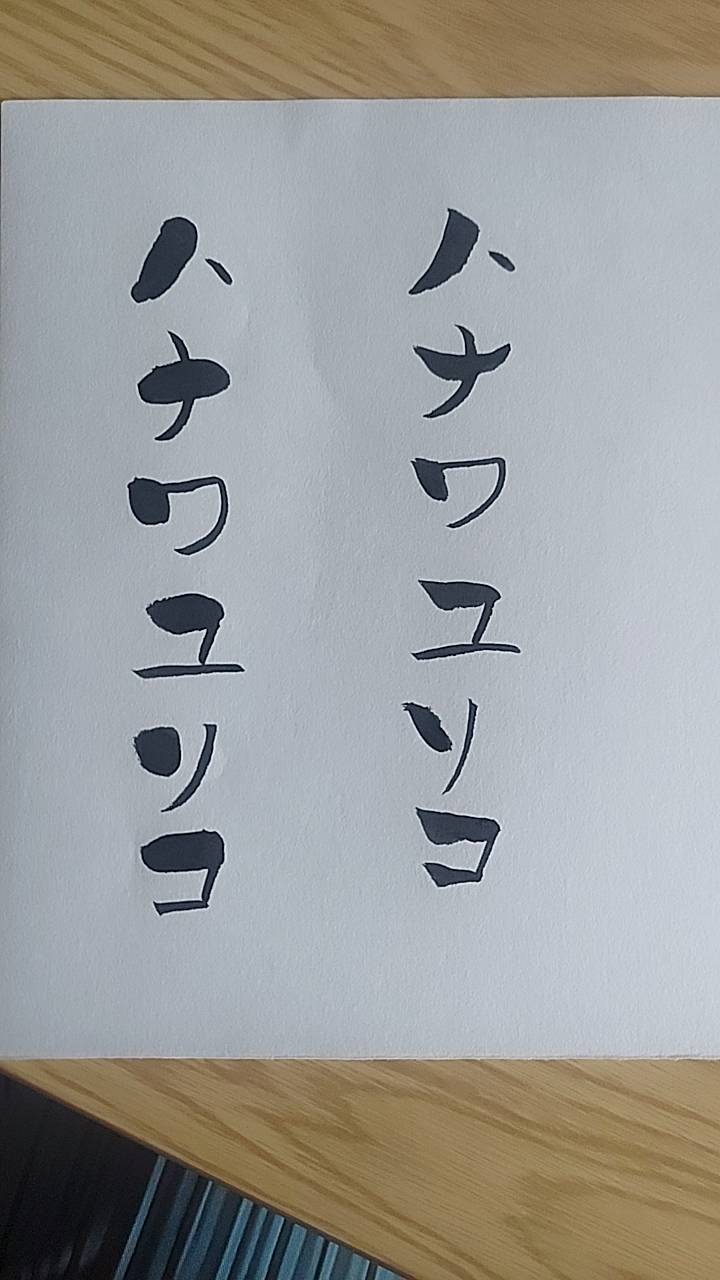 ハナワユソコ
ハナワユソコ